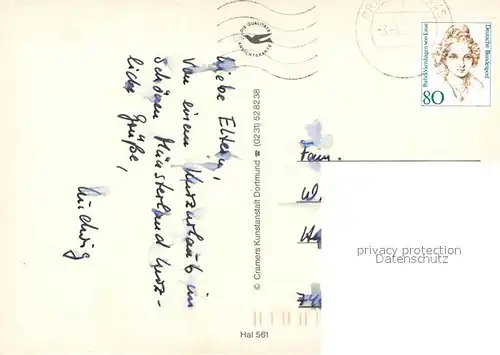 Liebe Eltern,
Von einem Kurzurlaub im
schönen Münsterland herz-
liche Grüße,
Ludwig
DIE QUALITÄTS
ANSICHTSKARTE
© Cramers Kunstanstalt Dortmund ☎ (0231) 528238
Hal 561
Rahel Varnhagen von Ense
Deutsche Bundespost
80
Fam.
W.
privacy protection